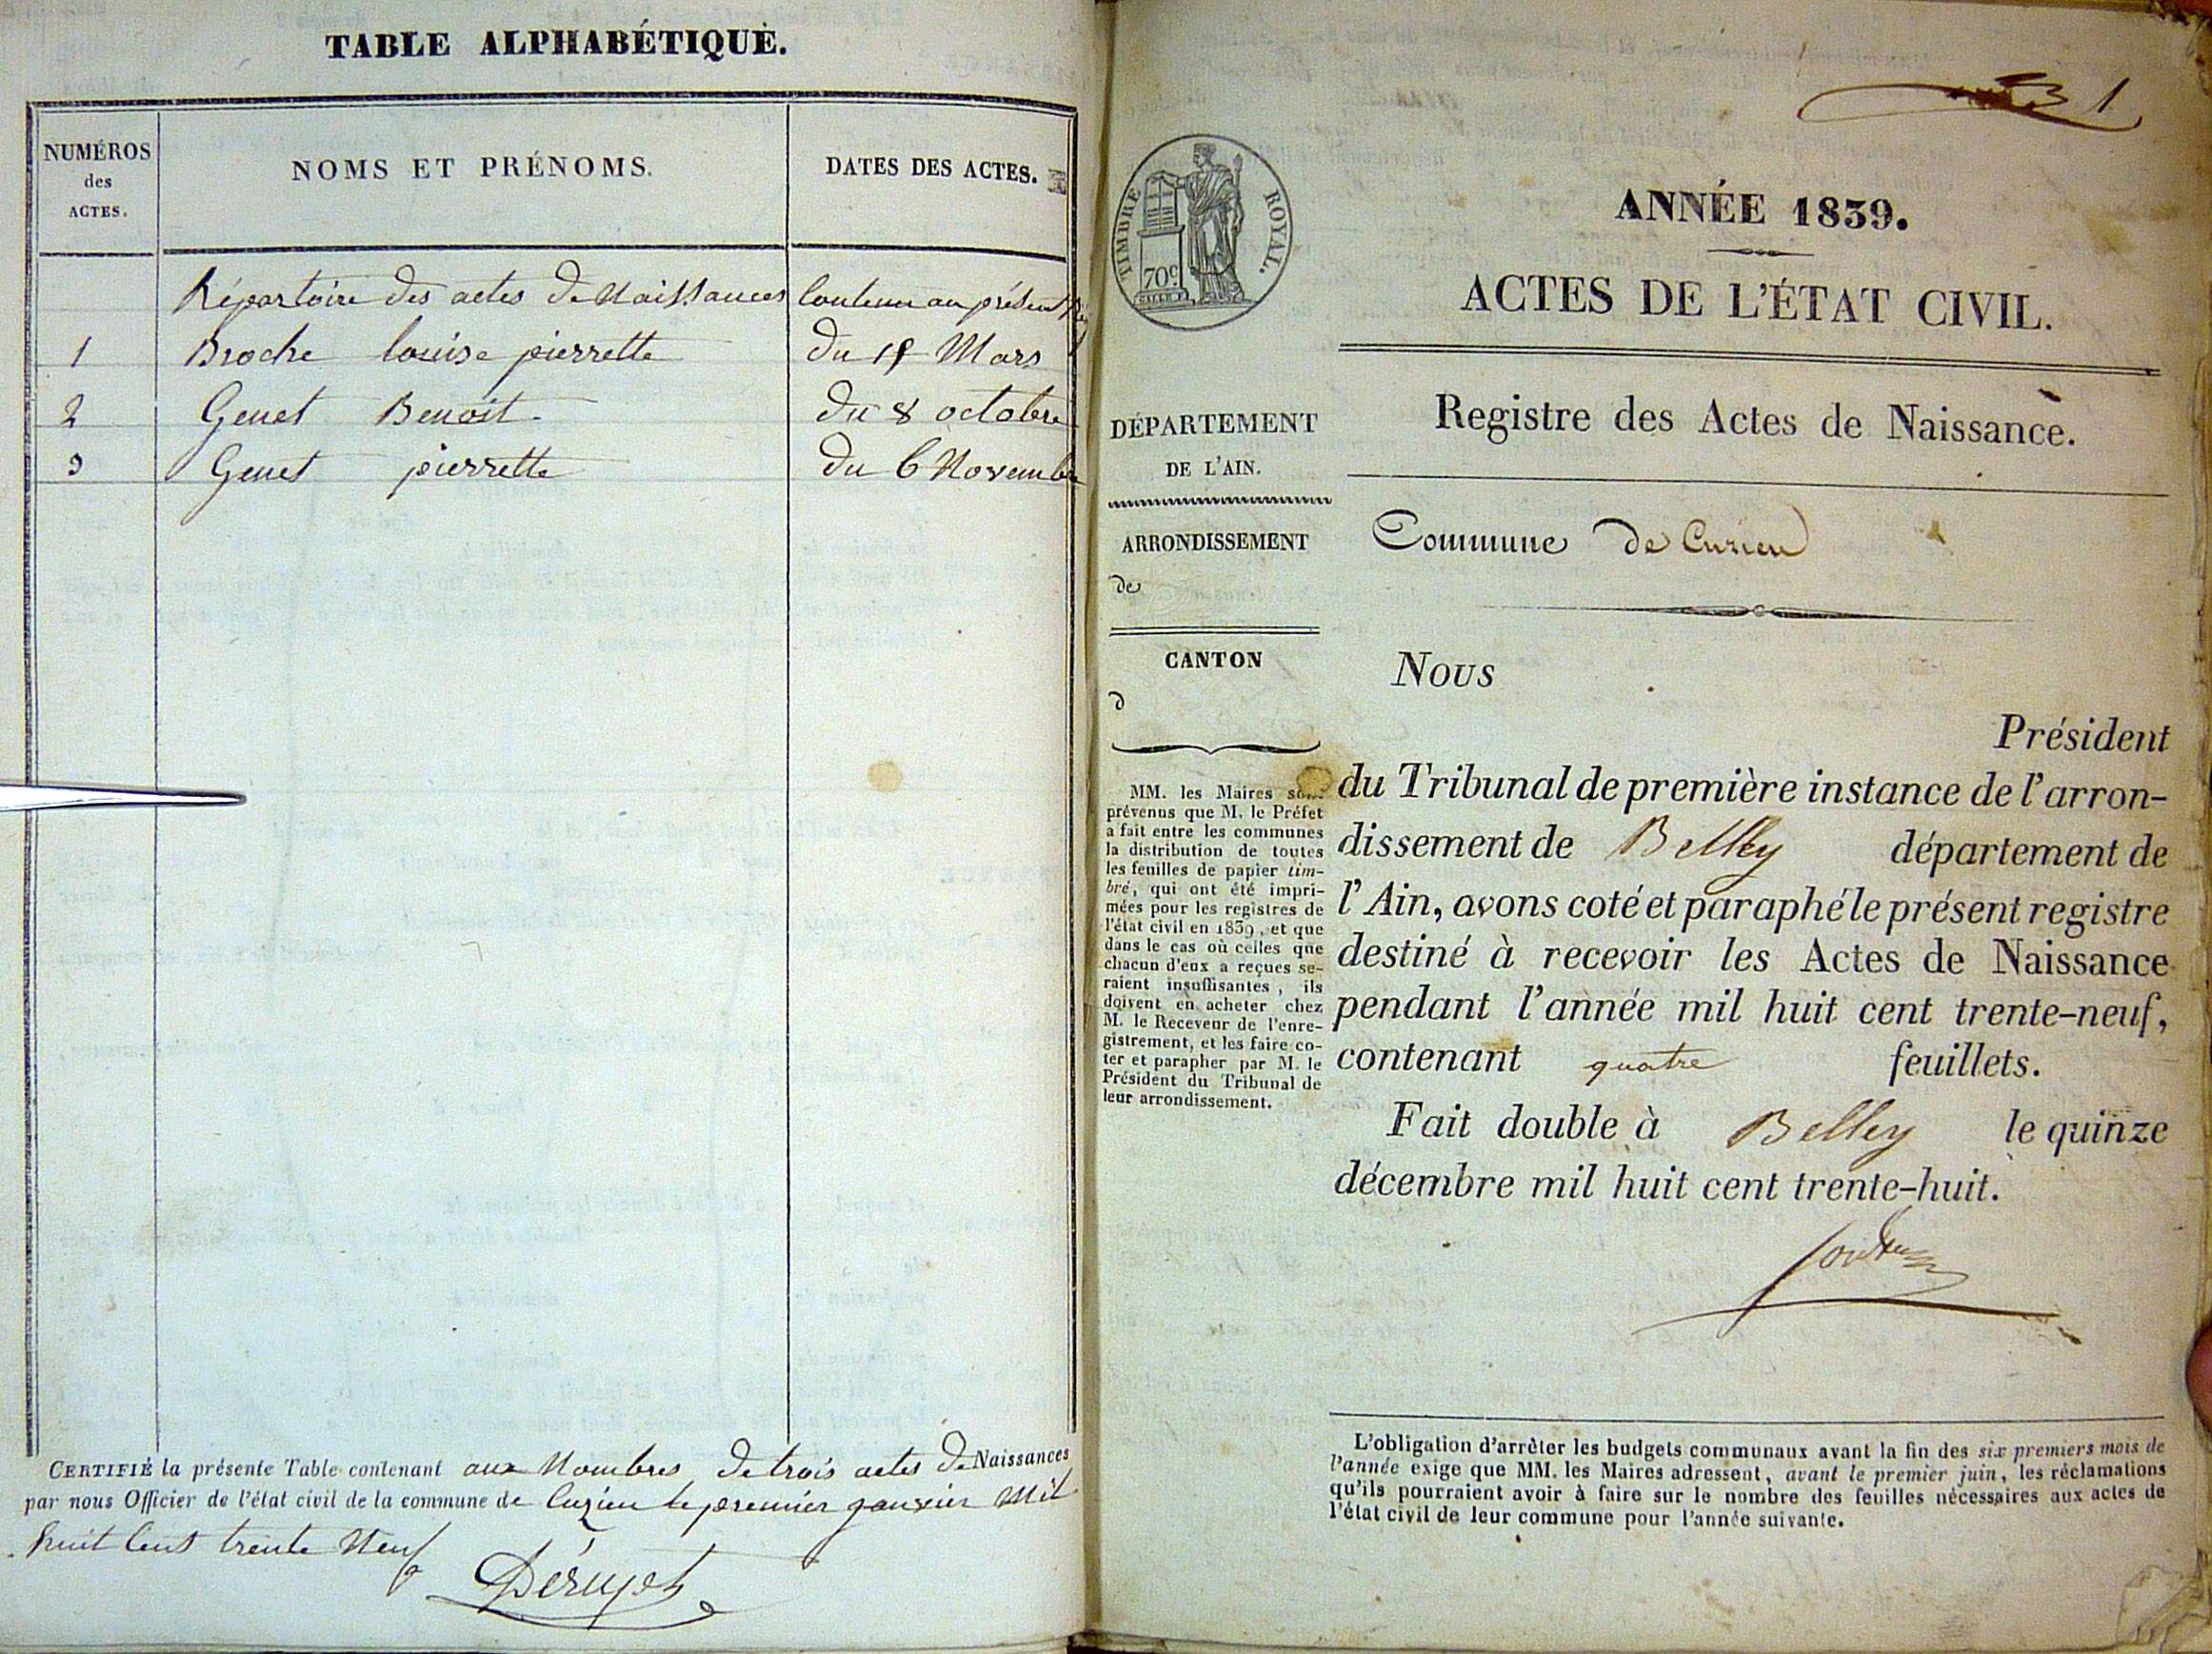 TABLE ALPHABÉTIQUE.
NUMÉROS
des
ACTES.
NOMS ET PRÉNOMS.
DATES DES ACTES.
Répertoire des actes de Naissances Contenu au présent
1 Broche louise pierrette du Mars
2 Genet Benoit du 8 octobre
3 Genet pierrette du 6 Novembre
CERTIFIÉ la présente Table contenant aux Nombres de trois actes de Naissances
par nous Officier de l'état civil de la commune de Cuzieu le premier janvier Mil
huit Cent trente Neuf
1
TIMBRE ROYAL.
70c
ANNÉE 1839.
ACTES DE L'ÉTAT CIVIL.
Registre des Actes de Naissance.
DÉPARTEMENT
DE L'AIN.
ARRONDISSEMENT
de
CANTON
d
MM. les Maires sont
prévenus que M. le Préfet
a fait entre les communes
la distribution de toutes
les feuilles de papier tim-
bré, qui ont été impri-
mées pour les registres de
l'état civil en 1839, et que
dans le cas où celles que
chacun d'eux a reçues se-
raient insuffisantes, ils
doivent en acheter chez
M. le Receveur de l'enre-
gistrement, et les faire co-
ter et parapher par M. le
Président du Tribunal de
leur arrondissement.
Commune de Cuzieu
Nous
Président
du Tribunal de première instance de l'arron-
dissement de Belley département de
l'Ain, avons coté et paraphé le présent registre
destiné à recevoir les Actes de Naissance
pendant l'année mil huit cent trente-neuf,
contenant quatre feuillets.
Fait double à Belley le quinze
décembre mil huit cent trente-huit.
L'obligation d'arrêter les budgets communaux avant la fin des six premiers mois de
l'année exige que MM. les Maires adressent, avant le premier juin, les réclamations
qu'ils pourraient avoir à faire sur le nombre des feuilles nécessaires aux actes de
l'état civil de leur commune pour l'année suivante.